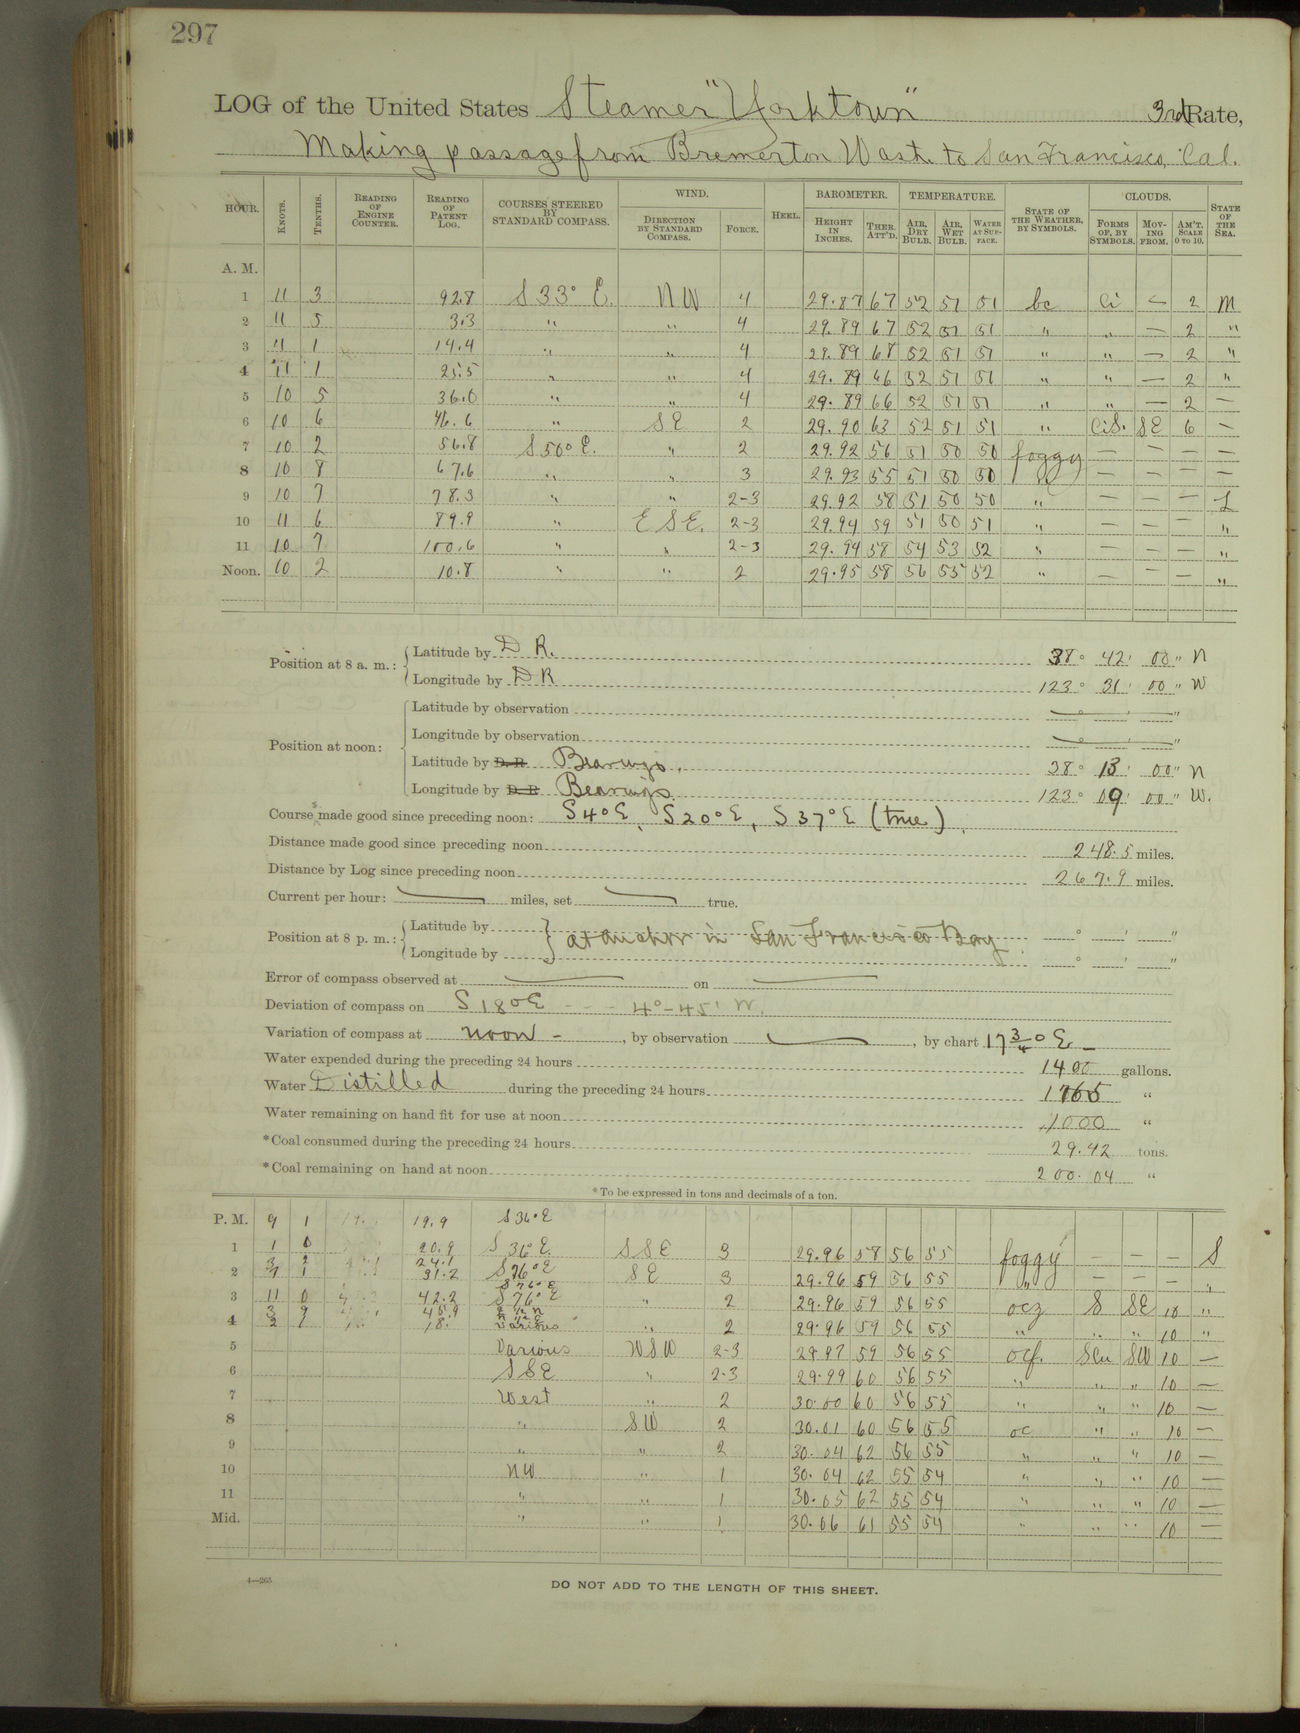 297
LOG of the United States Steamer "Yorktown" 3rd Rate,
Making passage from Bremerton Wash. to San Francisco, Cal.
HOUR. KNOTS. TENTHS. READING OF ENGINE COUNTER. READING OF PATENT LOG. COURSES STEERED BY STANDARD COMPASS. WIND. DIRECTION BY STANDARD COMPASS. FORCE. HEEL. BAROMETER. HEIGHT IN INCHES. THER. ATT'D. TEMPERATURE. AIR, DRY BULB. AIR, WET BULB. WATER AT SURFACE. STATE OF THE WEATHER, BY SYMBOLS. CLOUDS. FORMS OF, BY SYMBOLS. MOVING FROM. AM'T, SCALE 0 TO 10. STATE OF THE SEA.
A. M.
1 11 3 92.8 S 33° E. NW 4 29.87 67 52 51 51 bc Ci — 2 M
2 11 5 3.3 " " 4 29.89 67 52 51 51 " " — 2 "
3 11 1 14.4 " " 4 29.89 68 52 51 51 " " — 2 "
4 11 1 25.5 " " 4 29.89 66 52 51 51 " " — 2 "
5 10 5 36.0 " " 4 29.89 66 52 51 51 " " — 2 —
6 10 6 46.6 " SE 2 29.90 63 52 51 51 " Ci.S. SE 6 —
7 10 2 56.8 S 50° E. " 2 29.92 56 51 50 50 foggy — — — —
8 10 8 67.6 " " 3 29.93 55 51 50 50 " — — — —
9 10 7 78.3 " " 2-3 29.92 58 51 50 50 " — — — L
10 11 6 89.9 " ESE. 2-3 29.94 59 51 50 51 " — — — "
11 10 7 100.6 " " 2-3 29.94 58 54 53 52 " — — — "
Noon. 10 2 10.8 " " 2 29.95 58 56 55 52 " — — — "
Position at 8 a. m.: Latitude by D R. 38° 42' 00" N
Longitude by D R 123° 31' 00" W
Latitude by observation — ° ' "
Position at noon: Longitude by observation — ° ' "
Latitude by D. R Bearings. 38° 13' 00" N
Longitude by D R Bearings 123° 09' 00" W.
Courses made good since preceding noon: S 4° E, S 20° E, S 37° E (true).
Distance made good since preceding noon 248.5 miles.
Distance by Log since preceding noon 267.9 miles.
Current per hour: — miles, set — true.
Position at 8 p. m.: Latitude by } at anchor in San Francisco Bay ° ' "
Longitude by ° ' "
Error of compass observed at — on —
Deviation of compass on S 18° E - - - 4°-45' W.
Variation of compass at noon -, by observation —, by chart 17 3/4° E -
Water expended during the preceding 24 hours 1400 gallons.
Water Distilled during the preceding 24 hours 1765 "
Water remaining on hand fit for use at noon 1000 "
*Coal consumed during the preceding 24 hours 29.92 tons.
*Coal remaining on hand at noon 200.04 "
*To be expressed in tons and decimals of a ton.
P. M. 9 1 19.9 S 36° E
1 1 0 20.9 S 36° E. SSE 3 29.96 58 56 55 foggy — — — S
24.1
2 7 1 31.2 S 76° E SE 3 29.96 59 56 55 " — — — "
S 76° E
3 11 0 42.2 S 76° E " 2 29.96 59 56 55 ocz S SE 10 "
3 9
4 18. various " 2 29.96 59 56 55 " " " 10 "
5 Various WSW 2-3 29.97 59 56 55 ocf. SCu SW 10 —
6 SSE " 2-3 29.99 60 56 55 " " " 10 —
7 West " 2 30.00 60 56 55 " " " 10 —
8 " SW 2 30.01 60 56 55 oc " " 10 —
9 " " 2 30.04 62 56 55 " " " 10 —
10 NW " 1 30.04 62 55 54 " " " 10 —
11 " " 1 30.05 62 55 54 " " " 10 —
Mid. " " 1 30.06 61 55 54 " " " 10 —
4—265
DO NOT ADD TO THE LENGTH OF THIS SHEET.